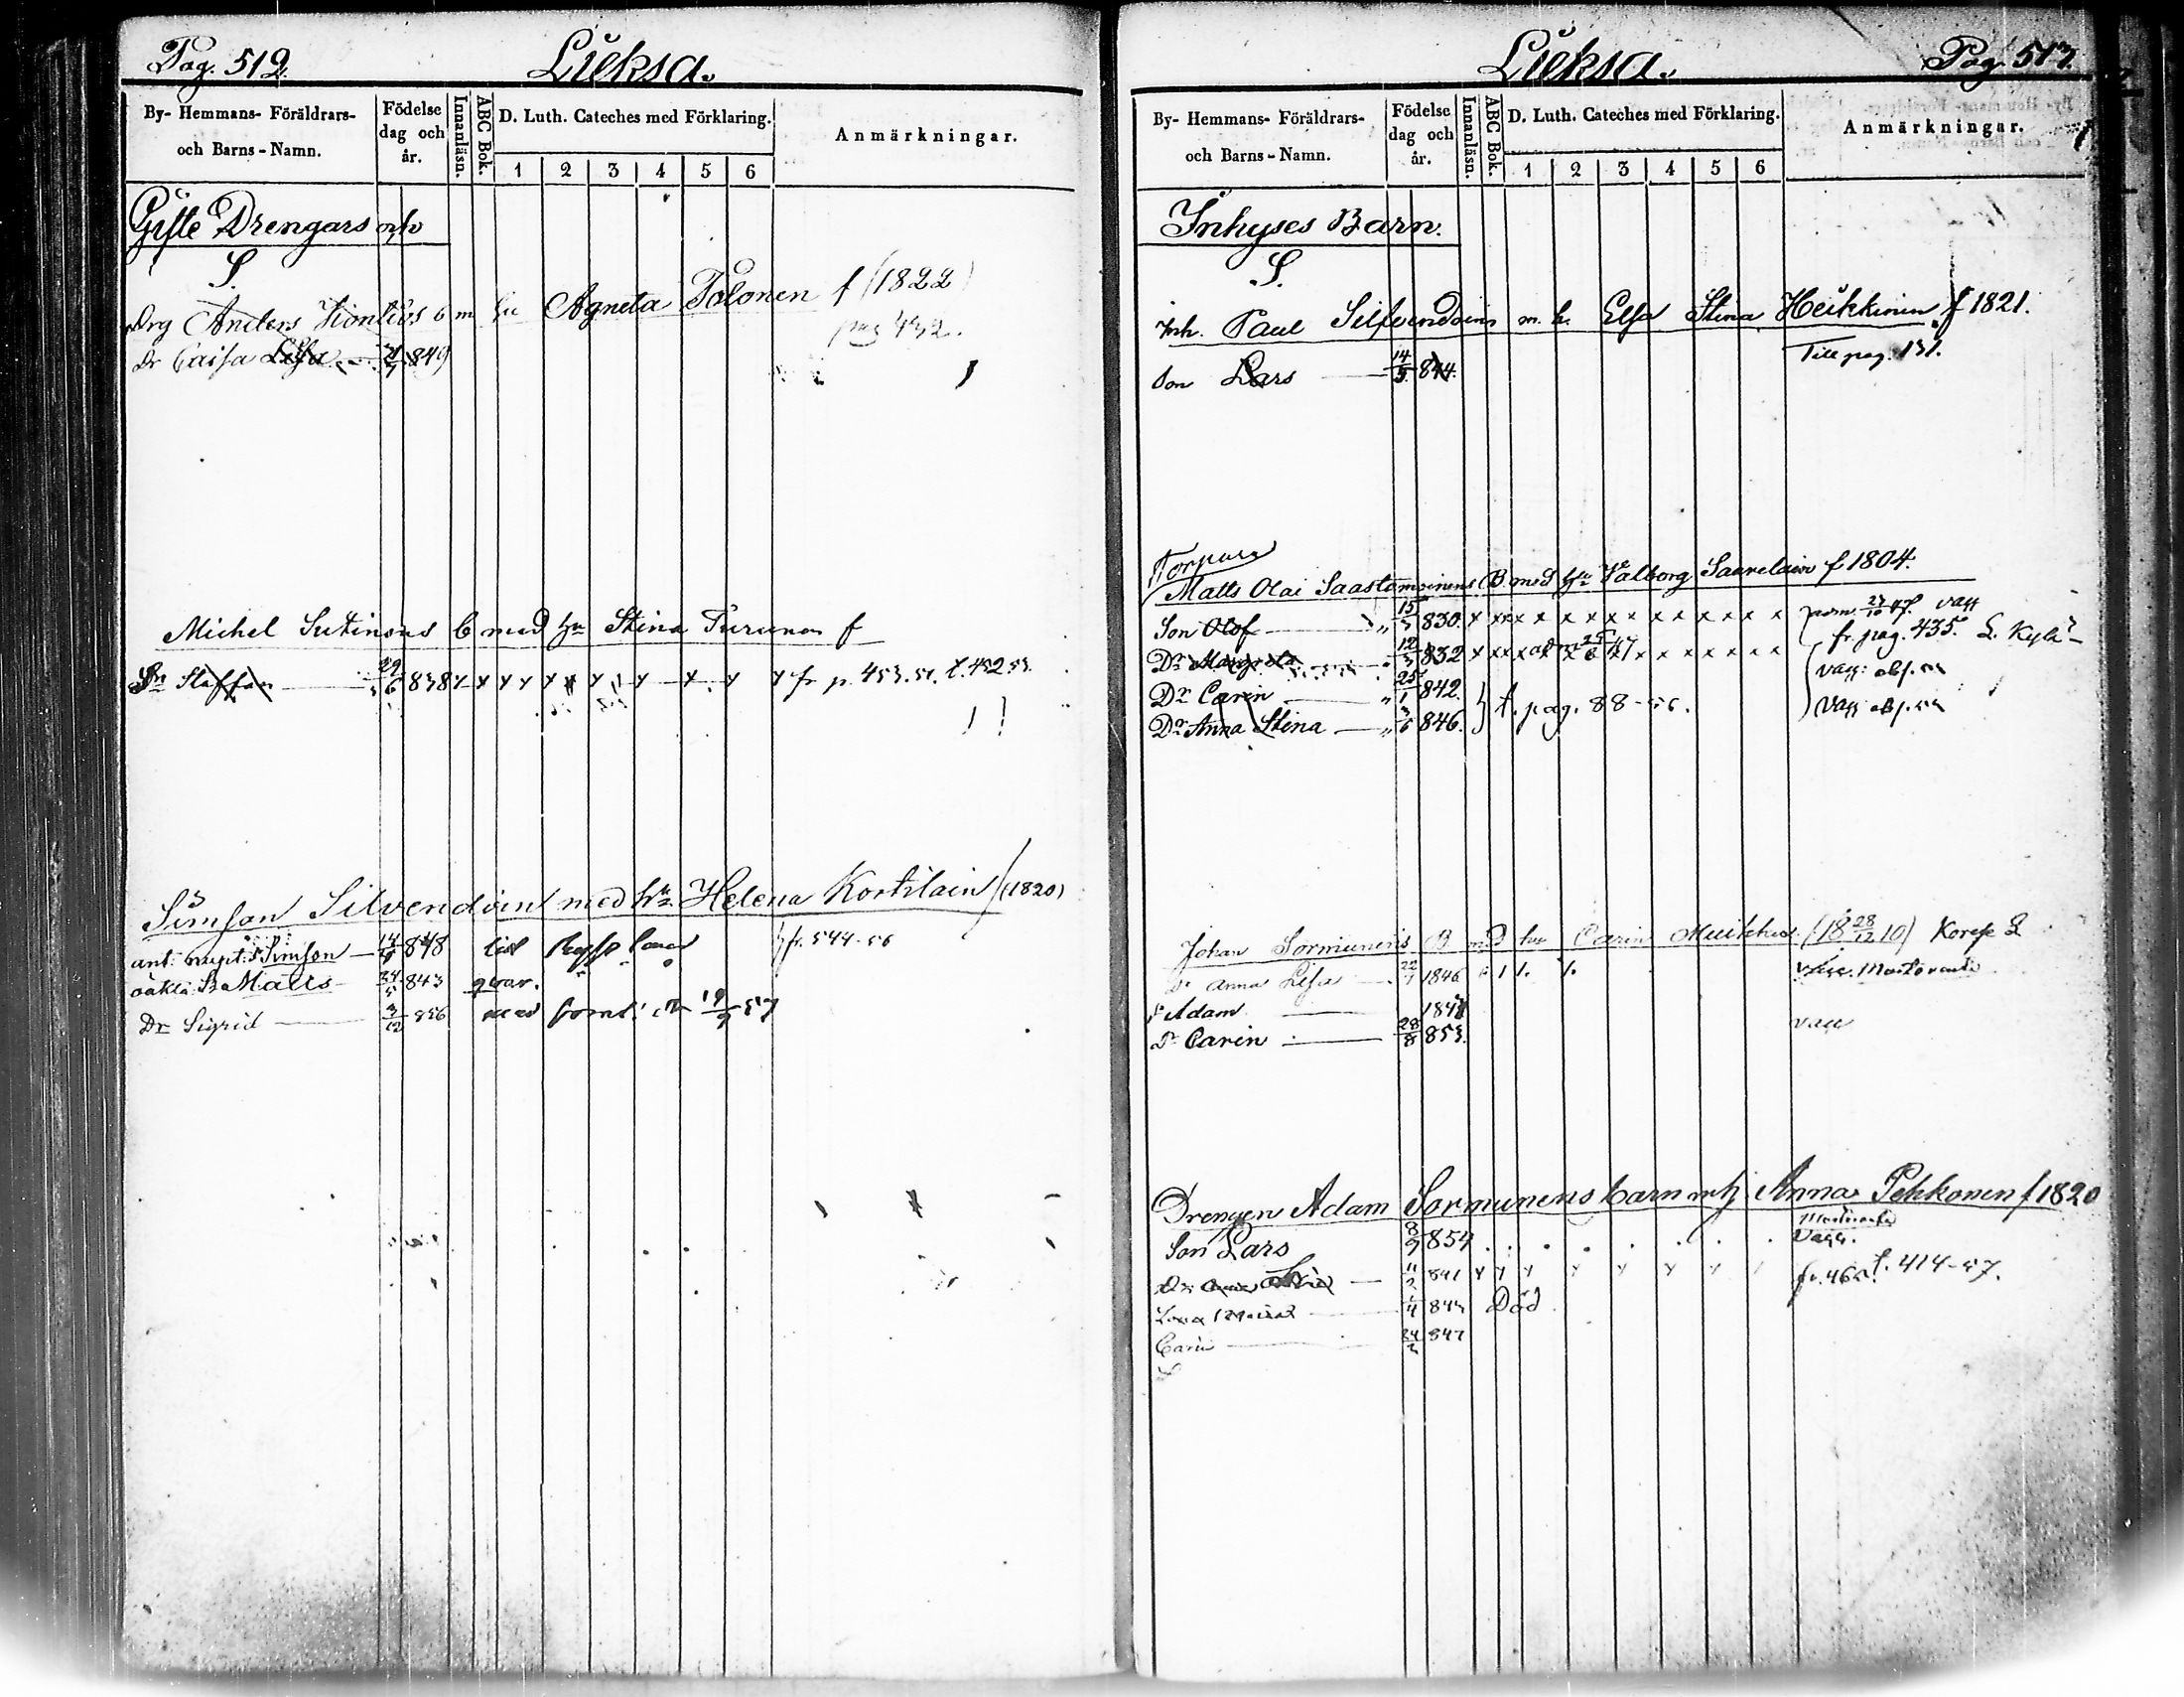 Pag. 512.
Lieksa.
By- Hemmans- Föräldrars- och Barns-Namn.
Födelse dag och år.
Innanläsn.
ABC Bok.
D. Luth. Cateches med Förklaring.
1 2 3 4 5 6
Anmärkningar.
Gifte Drengars
S.
Drg Anders b m hu Agneta Tolonen f (1822)
pag 432.
Dr Caisa Lisa 849
Michel Sutinens b med hu Stina Turunen f
Sn Staffan 29/6 838 x x x x x x x x x x fr p. 453.51. t. 452 53.
Simson Silvendoin med hu Helena Kortilain (1820)
ant. nupt. S Simson 848 fr. 544-56
oäkta Sn Matts 843 qvar.
Dr Sigrid 3/12 856 19/9 57
Lieksa.
Pag. 513.
By- Hemmans- Föräldrars- och Barns-Namn.
Födelse dag och år.
Innanläsn.
ABC Bok.
D. Luth. Cateches med Förklaring.
1 2 3 4 5 6
Anmärkningar.
Inhyses Barn.
S.
Inh. Paul Silfvendoins m. h. Elsa Stina Heikkinen f 1821.
Till pag. 131.
Son Lars 14/5 844.
Torpare
Matts Olai Saastamoinens B. med hu Valborg Saarelain f 1804.
Son Olof 15 830. x x x x x x x x x x x x x x vacc
fr. pag. 435. L. Kylä
Dr Margreta 12/3 832 x x x x x x x x x x x x x x
Dr Carin 25/1 842. t. pag. 88-56. vacc
Dr Anna Stina 846. vacc
Johan Sormunens B med hu Carin Muikku (18 28/12 10)
Dr Anna Lisa 22/7 1846
S Adam
Dr Carin 28/8 853. vacc
Drengen Adam Sormunens barn mh Anna Pehkonen f 1820
Son Lars 8/9 854 Vacc.
Dr 841 x x x x x x x x t. 414-57.
Död
Carin 847